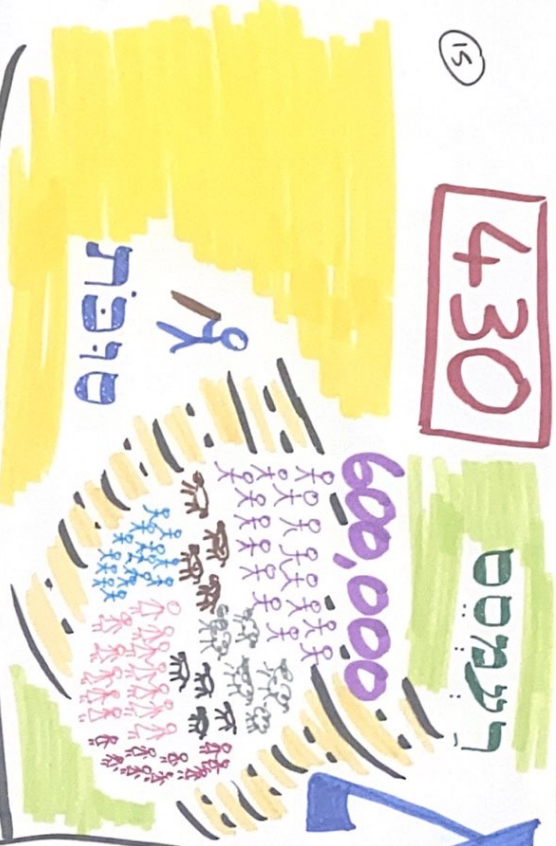 15
430
רַעְמְסֵס
600,000
סֻכֹּת